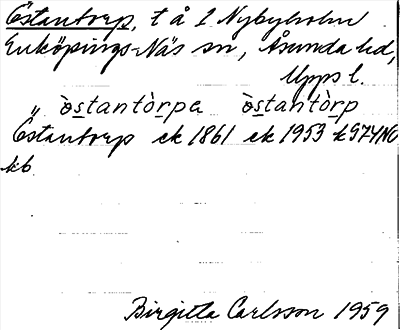 Östantorp, t å 2 Nybyholm
Enköpings-Näs sn, Åsunda hd,
Upps l.
" östantòrpa östantòrp
Östantorp ek 1861 ek 1953 k974NO
kb
Birgitta Carlsson 1959